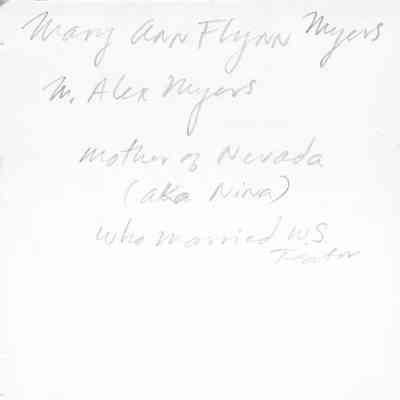 Mary Ann Flynn Myers
m. Alex Myers
mother of Nevada
(aka Nina)
who married W.S.